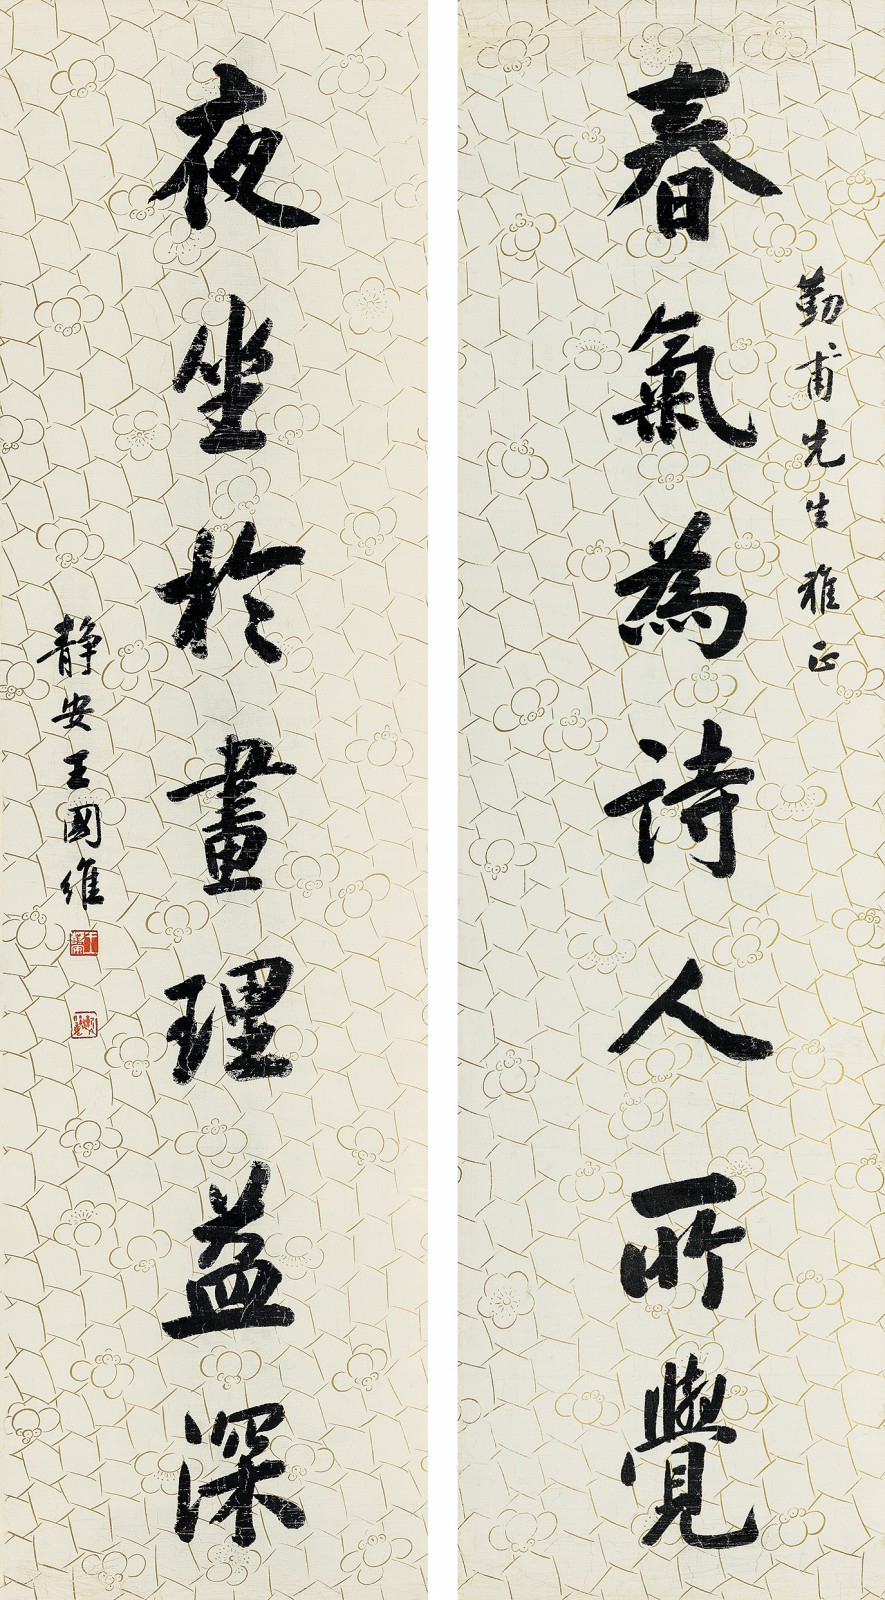 春氣為詩人所覺
勤甫先生雅正
夜坐於畫理益深
靜安王國維